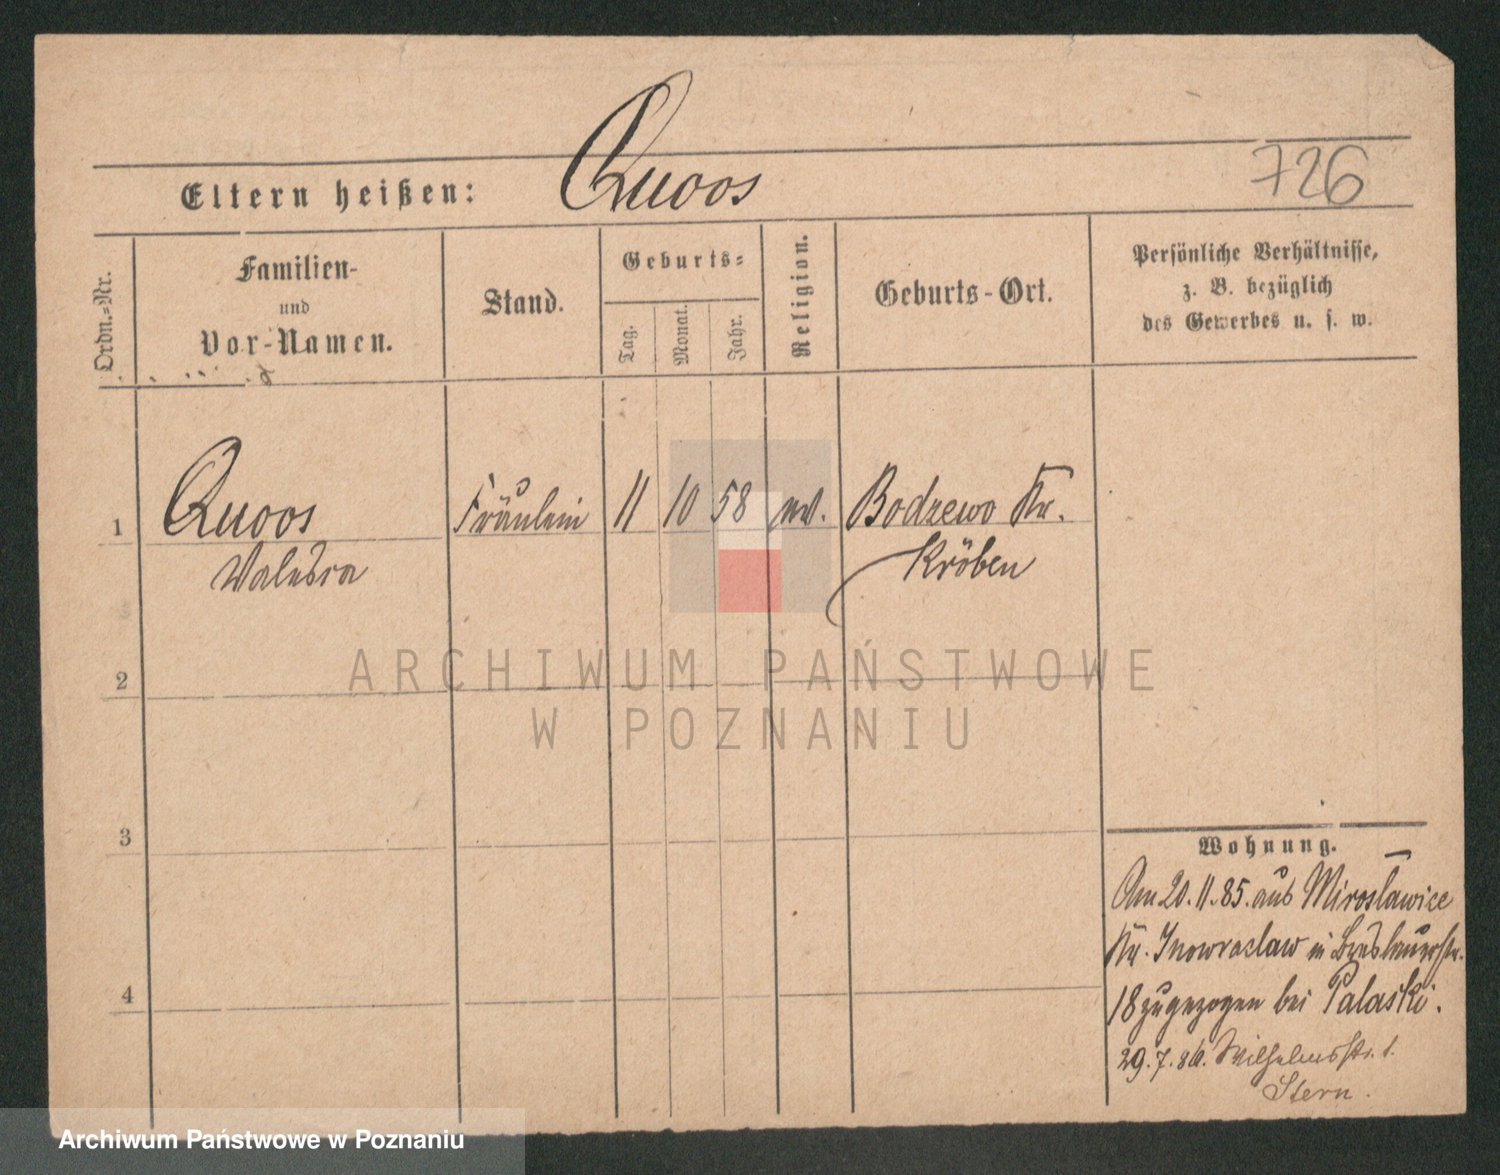 726
Eltern heißen: Quoos
Ordn.-Nr.
Familien-
und
Vor-Namen.
Stand.
Geburts-
Tag.
Monat.
Jahr.
Religion.
Geburts-Ort.
Persönliche Verhältnisse,
z. B. bezüglich
des Gewerbes u. s. w.
1 Quoos Fräulein 11 10 58 Bodzewo Kr.
Waleska Kröben
2
3
4
Wohnung.
Am 20.11.85. aus Mirosławice
Kr. Inowraclaw in Breslauerstr.
18 zugezogen bei Palaski.
29.7.86. Wilhelmsstr. 1.
Stern.
ARCHIWUM PAŃSTWOWE
W POZNANIU
Archiwum Państwowe w Poznaniu